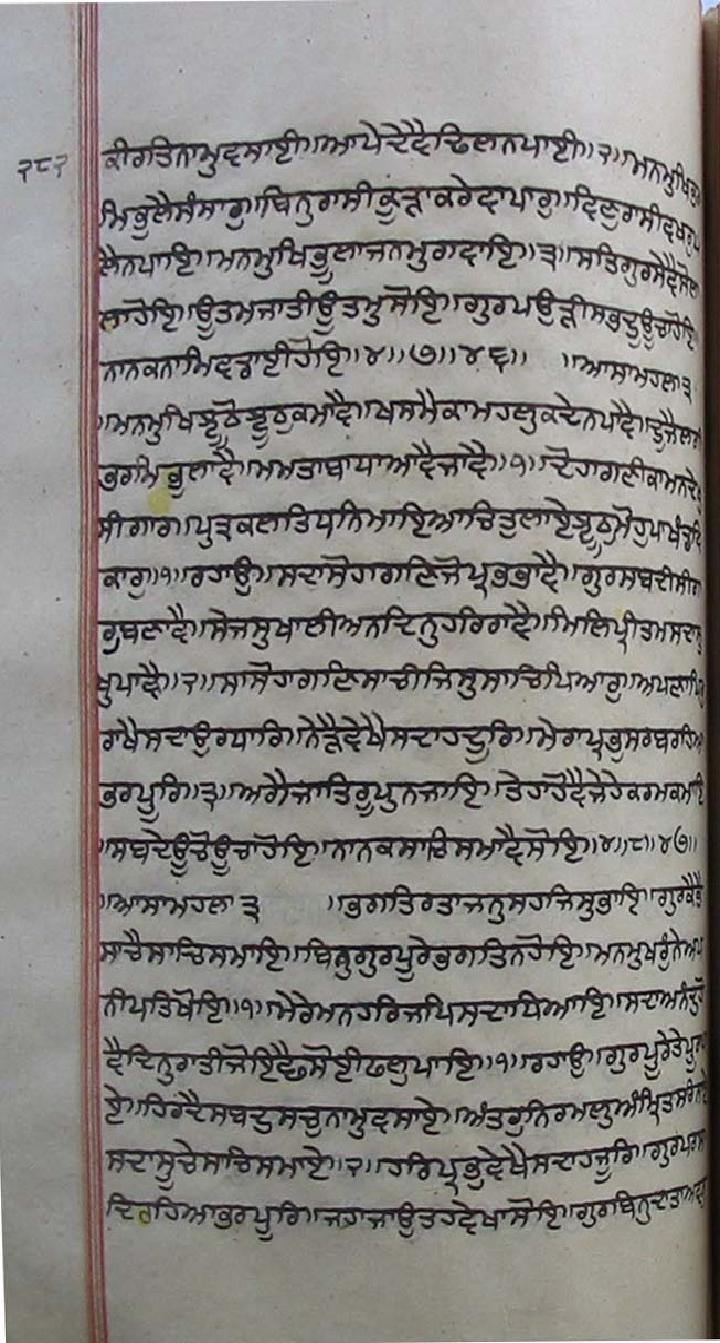 ੨੮੨
ਕੀਗਤਿਨਾਮੁਵਸਾਈ॥ਆਪੇਦੇਵੈਢਿਲਨਪਾਈ॥੨॥ਮਨਮੁਖਿ
ਮਿਭੁਲੈਸੰਸਾਰੁ॥ਬਿਨੁਰਾਸੀਕੂੜਾਕਰੇਵਾਪਾਰੁ॥ਵਿਣੁਰਾਸੀਵਖਰੁਪ
ਲੈਨਪਾਇ॥ਮਨਮੁਖਿਭੁਲਾਜਨਮੁਗਵਾਇ॥੩॥ਸਤਿਗੁਰਸੇਵੈਸੋਲਾ
ਲਾਹੋਇ॥ਊਤਮਜਾਤੀਊਤਮੁਸੋਇ॥ਗੁਰਪਉੜੀਸਭਦੂਊਚਾਹੋਇ
ਨਾਨਕਨਾਮਿਵਡਾਈਹੋਇ॥੪॥੭॥੪੬॥ ॥ਆਸਾਮਹਲਾ੩
॥ਮਨਮੁਖਿਝੂਠੋਝੂਠੁਕਮਾਵੈ॥ਖਸਮੈਕਾਮਹਲੁਕਦੇਨਪਾਵੈ॥ਦੂਜੈਲਗੀ
ਭਰਮਿਭੁਲਾਵੈ॥ਮਮਤਾਬਾਧਾਆਵੈਜਾਵੈ॥੧॥ਦੋਹਾਗਣੀਕਾਮਨਦੇਖੁ
ਸੀਗਾਰੁ॥ਪੁਤ੍ਰਕਲਤਿਧਨਿਮਾਇਆਚਿਤੁਲਾਏਝੂਠੁਮੋਹੁਪਾਖੰਡਵਿ
ਕਾਰੁ॥੧॥ਰਹਾਉ॥ਸਦਾਸੋਹਾਗਣਿਜੋਪ੍ਰਭਭਾਵੈ॥ਗੁਰਸਬਦੀਸੀਗਾ
ਰੁਬਣਾਵੈ॥ਸੇਜਸੁਖਾਲੀਅਨਦਿਨੁਹਰਿਰਾਵੈ॥ਮਿਲਿਪ੍ਰੀਤਮਸਦਾਸੁ
ਖੁਪਾਵੈ॥੨॥ਸਾਸੋਹਾਗਣਿਸਾਚੀਜਿਸੁਸਾਚਿਪਿਆਰੁ॥ਅਪਣਾਪਿਰੁ
ਰਾਖੈਸਦਾਉਰਧਾਰਿ॥ਨੇੜੈਵੇਖੈਸਦਾਹਦੂਰਿ॥ਮੇਰਾਪ੍ਰਭੁਸਰਬਰਹਿਆ
ਭਰਪੂਰਿ॥੩॥ਅਗੈਜਾਤਿਰੂਪੁਨਜਾਇ॥ਤੇਹਾਹੋਵੈਜੇਹੇਕਰਮਕਮਾਇ
॥ਸਬਦੇਊਚੋਊਚਾਹੋਇ॥ਨਾਨਕਸਾਚਿਸਮਾਵੈਸੋਇ॥੪॥੮॥੪੭॥
॥ਆਸਾਮਹਲਾ੩ ॥ਭਗਤਿਰਤਾਜਨੁਸਹਜਿਸੁਭਾਇ॥ਗੁਰਕੈਭੈ
ਸਾਚੈਸਾਚਿਸਮਾਇ॥ਬਿਨੁਗੁਰਪੂਰੇਭਗਤਿਨਹੋਇ॥ਮਨਮੁਖਰੁੰਨੇਅਪ
ਨੀਪਤਿਖੋਇ॥੧॥ਮੇਰੇਮਨਹਰਿਜਪਿਸਦਾਧਿਆਇ॥ਸਦਾਅਨੰਦੁਹੋ
ਵੈਦਿਨੁਰਾਤੀਜੋਇਛੈਸੋਈਫਲੁਪਾਇ॥੧॥ਰਹਾਉ॥ਗੁਰਪੂਰੇਤੇਪੂਰਾਪਾ
ਏ॥ਹਿਰਦੈਸਬਦੁਸਚੁਨਾਮੁਵਸਾਏ॥ਅੰਤਰੁਨਿਰਮਲੁਅੰਮ੍ਰਿਤਸਰਿਨਾਏ
ਸਦਾਸੂਚੇਸਾਚਿਸਮਾਏ॥੨॥ਹਰਿਪ੍ਰਭੁਵੇਖੈਸਦਾਹਜੂਰਿ॥ਗੁਰਪਰਸਾ
ਦਿਰਹਿਆਭਰਪੂਰਿ॥ਜਹਾਜਾਉਤਹਵੇਖਾਸੋਇ॥ਗੁਰਬਿਨੁਦਾਤਾਅਵਰੁ